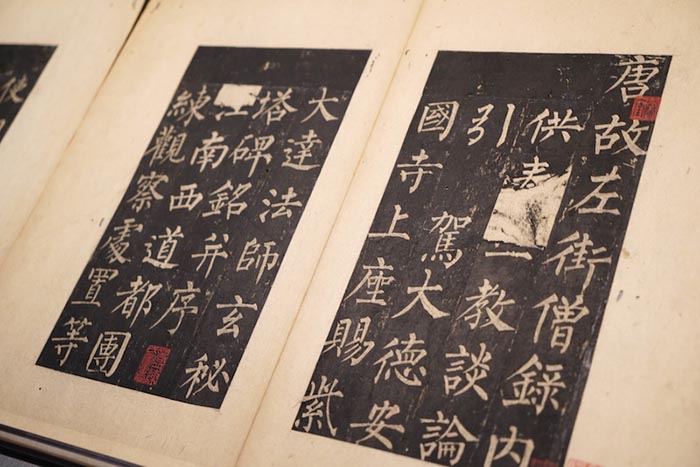 唐故左街僧錄內
供教談論
引駕大德安
國寺上座賜紫
大達法師玄秘
塔碑銘并序
江南西道都團
練觀察處置等
使